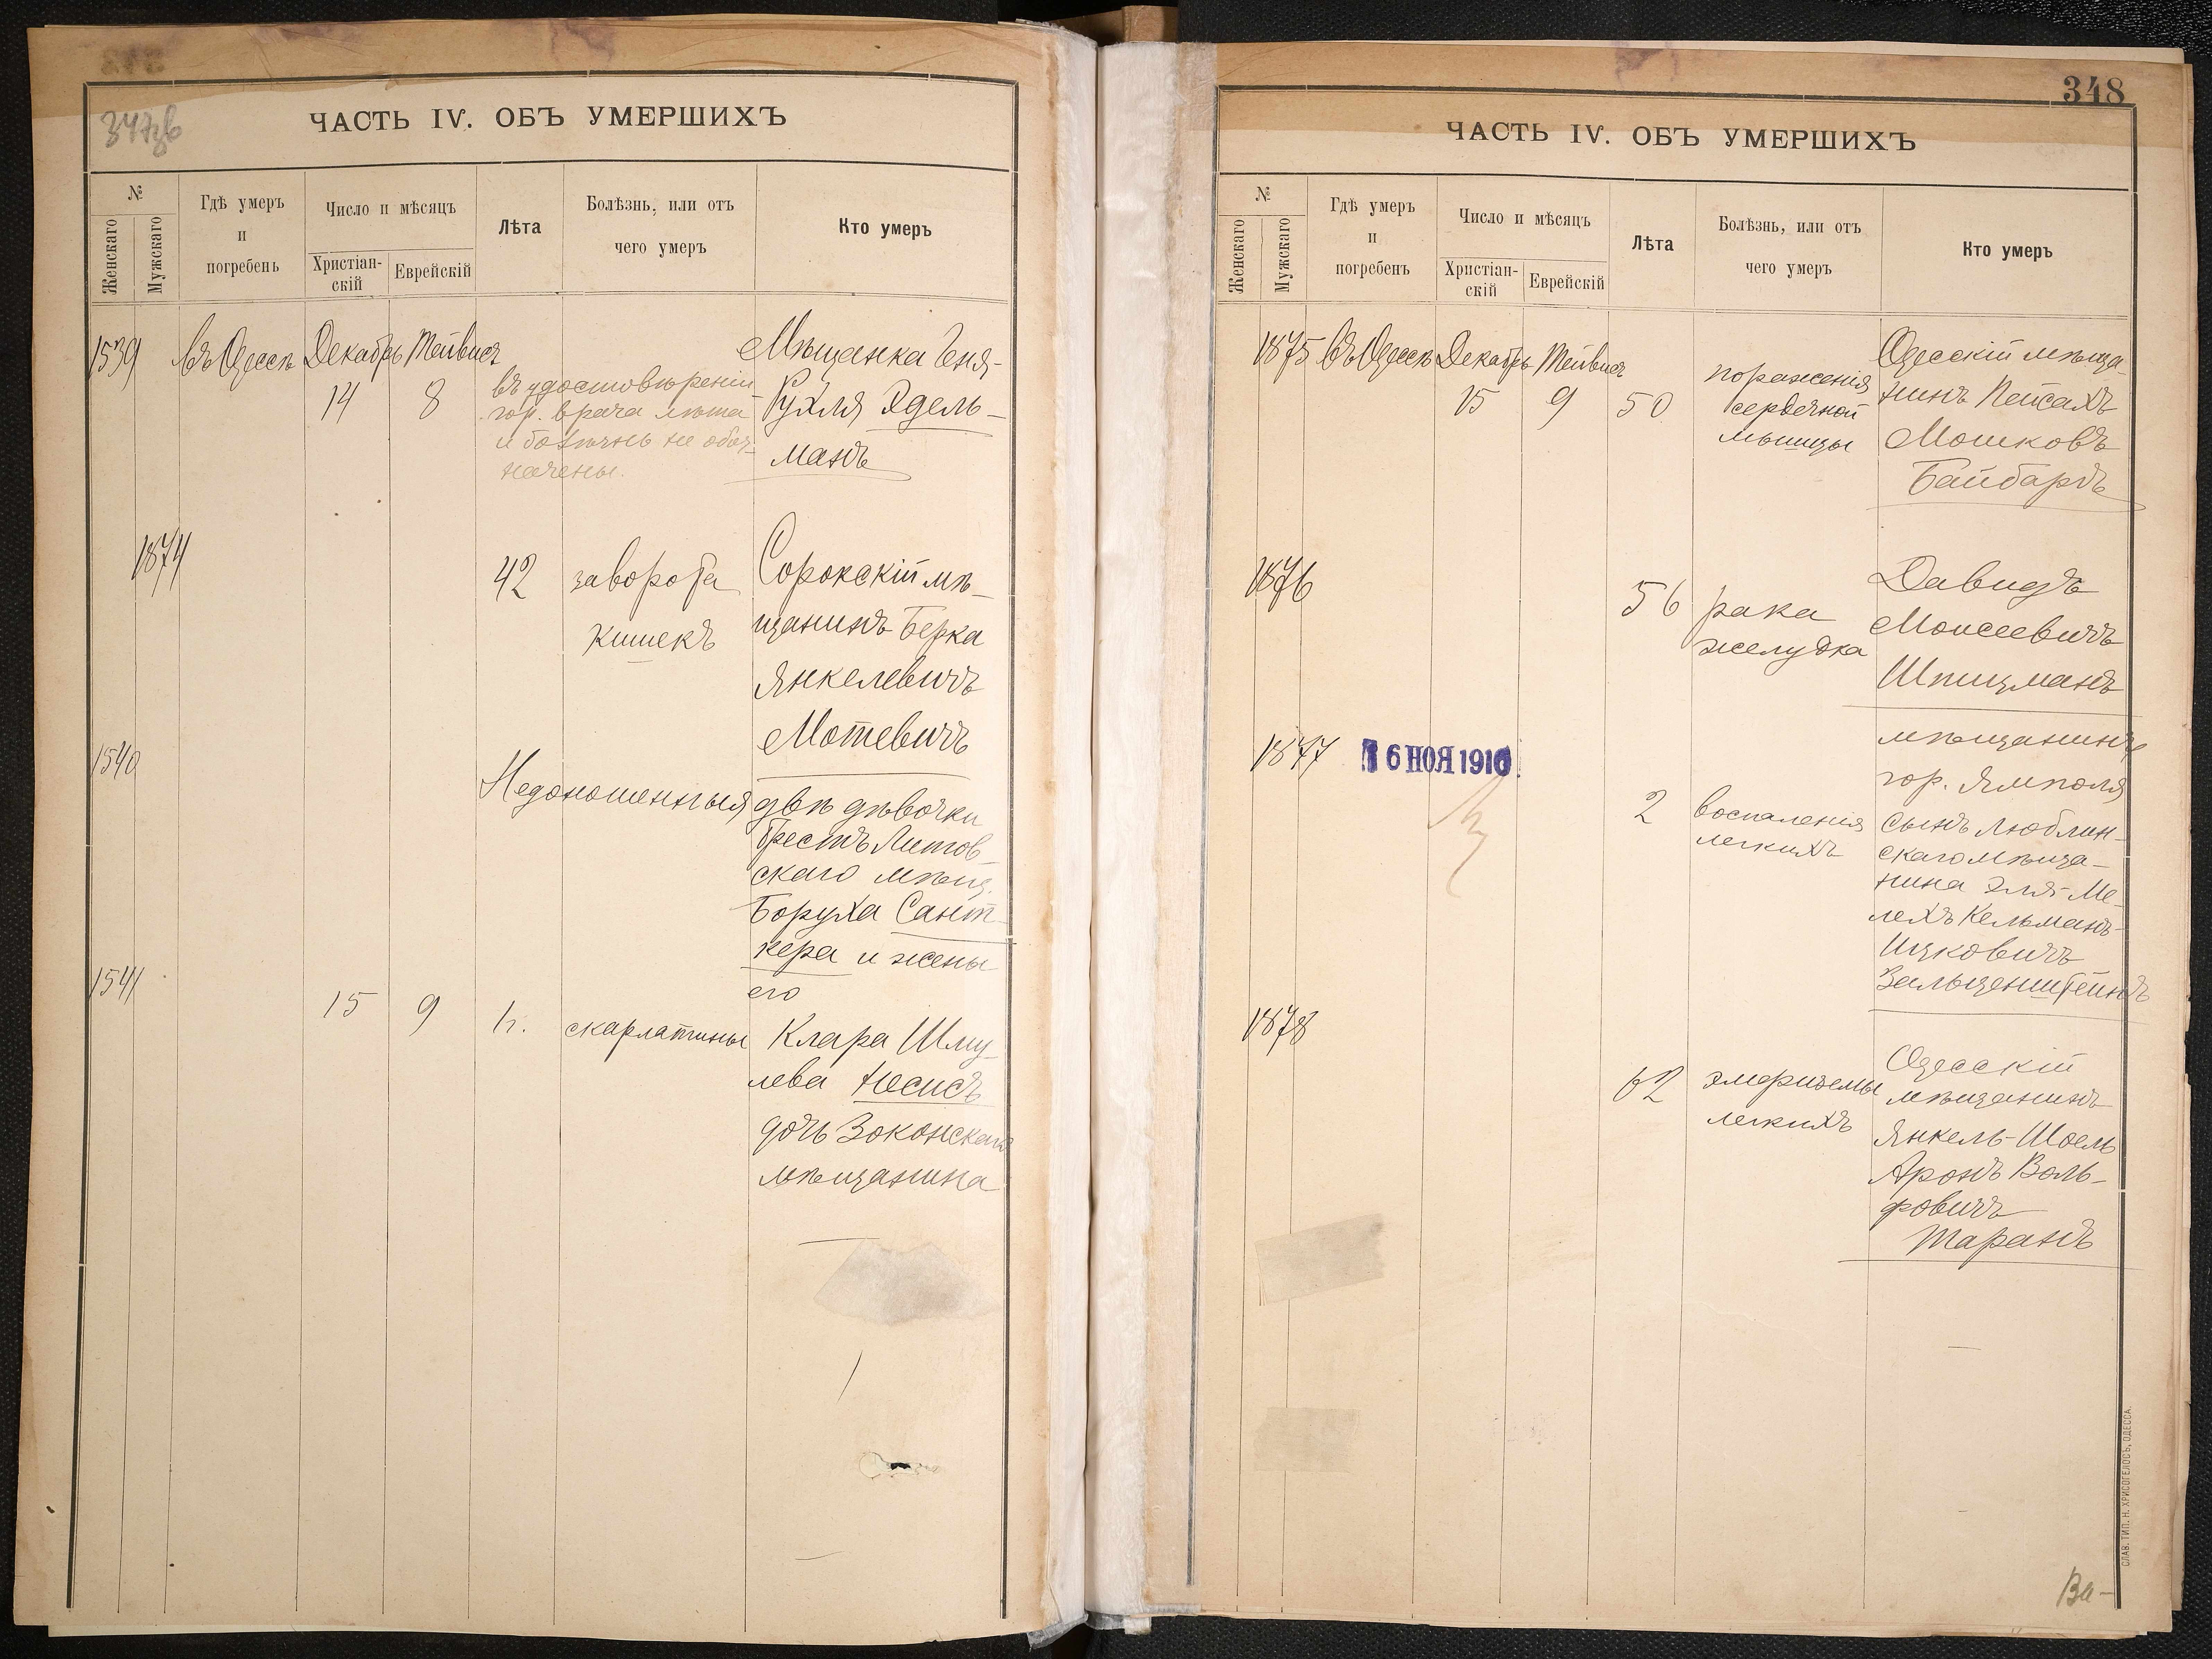 347зв
ЧАСТЬ IV. ОБЪ УМЕРШИХЪ
№
Женскаго
Мужскаго
Гдѣ умеръ
и
погребенъ
Число и мѣсяцъ
Христіан-
скій
Еврейскій
Лѣта
Болѣзнь, или отъ
чего умеръ
Кто умеръ
1539 въ Одессѣ Декабрь Тейвисъ
14 8
въ удостовѣреніи
гор. врача лѣта
и болѣзнь не обоз-
начены.
Мѣщанка Геня-
Рухля Эдель-
манъ
1874
42 заворота
кишекъ
Сорокскій мѣ-
щанинъ Берка
Янкелевичъ
Мотевичъ
1540
Недоношенныя двѣ дѣвочки
Брестъ Литов-
скаго мѣщ.
Боруха Сант-
кера и жены
его
1541
15 9 1г. скарлатины
Клара Шму-
лева Нисисъ
дочь
мѣщанина
348
ЧАСТЬ IV. ОБЪ УМЕРШИХЪ
№
Женскаго
Мужскаго
Гдѣ умеръ
и
погребенъ
Число и мѣсяцъ
Христіан-
скій
Еврейскій
Лѣта
Болѣзнь, или отъ
чего умеръ
Кто умеръ
1875 въ Одессѣ Декабрь Тейвисъ
15 9 50
пораженія
сердечной
мышцы
Одесскій мѣща-
нинъ Пейсахъ
Мошковъ
Байбардъ
1876
56 рака
желудка
Давидъ
Моисеевичъ
Шпицманъ
мѣщанинъ
гор. Ямполя
1877
16 НОЯ 1910
2 воспаленія
легкихъ
сынъ Люблин-
скаго мѣща-
нина Эля-Ме-
лехъ Кельманъ-
Ицковичъ
Зальценштейнъ
1878
62 эмфиземы
легкихъ
Одесскій
мѣщанинъ
Янкель-Шоель
Аронъ Воль-
фовичъ
Таранъ
СЛАВ. ТИП. Н. ХРИСОГЕЛОСЪ, ОДЕССА.